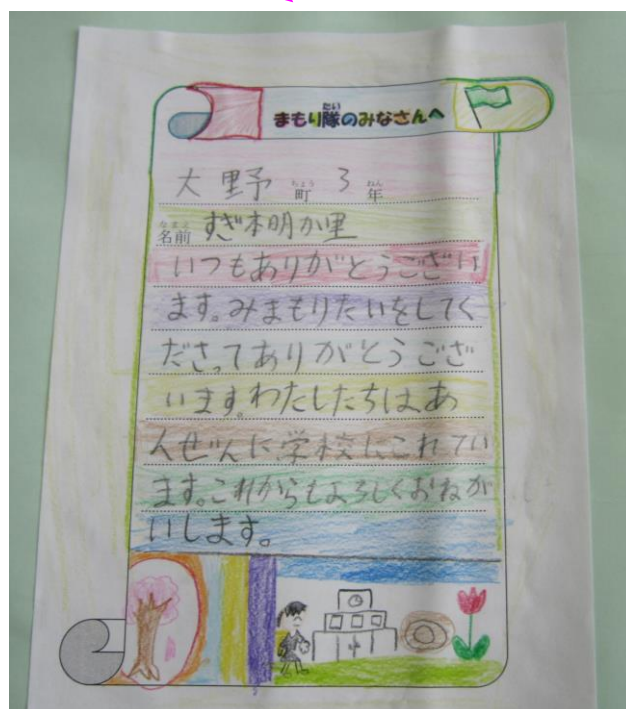 まもり隊のみなさんへ
大野町3年
名前 すぎ本明か里
いつもありがとうござい
ます。みまもりたいをしてく
ださってありがとうござ
います。わたしたちは、あ
んぜんに学校にこれてい
ます。これからもよろしくおねが
いします。